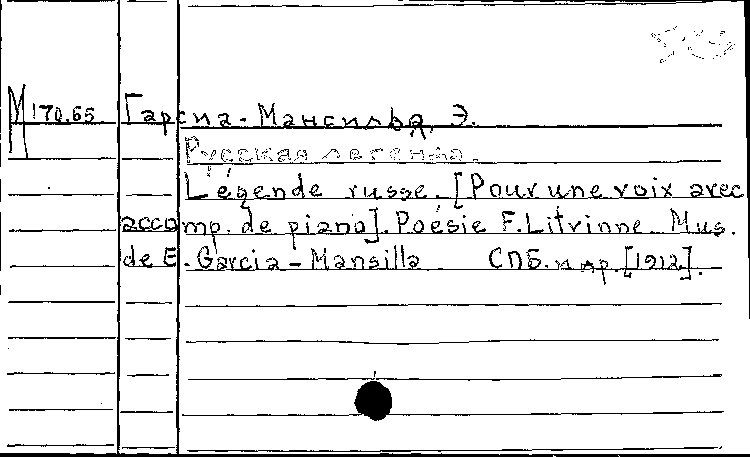 М 170.65 Гарсиа-Мансилья, Э.
Русская легенда.
Légende russe. [Pour une voix avec
accomp. de piano]. Poésie F. Litvinne. Mus.
de E. Garcia-Mansilla СПБ. и др. [1912].